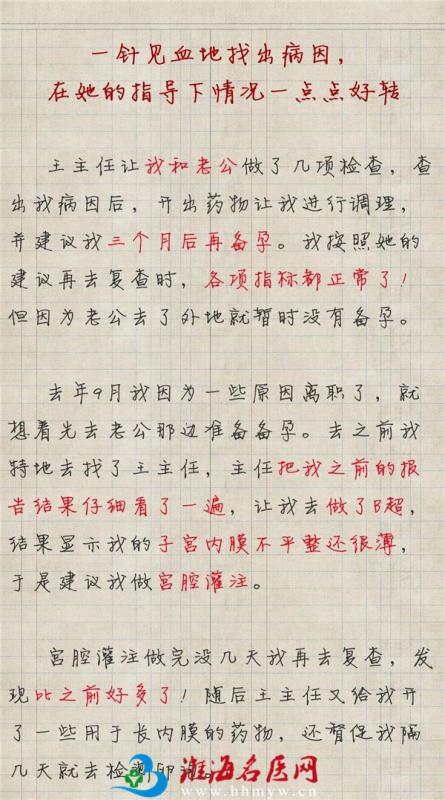 一针见血地找出病因，
在她的指导下情况一点点好转
王主任让我和老公做了几项检查，查
出我病因后，开出药物让我进行调理，
并建议我三个月后再备孕。我按照她的
建议再去复查时，各项指标都正常了！
但因为老公去了外地就暂时没有备孕。
去年9月我因为一些原因离职了，就
想着先去老公那边准备备孕。去之前我
特地去找了王主任，主任把我之前的报
告结果仔细看了一遍，让我去做了B超，
结果显示我的子宫内膜不平整还很薄，
于是建议我做宫腔灌注。
宫腔灌注做完没几天我再去复查，发
现比之前好多了！随后王主任又给我开
了一些用于长内膜的药物，还督促我隔
几天就去检测卵泡。
淮海名医网
www.hhmyw.cn